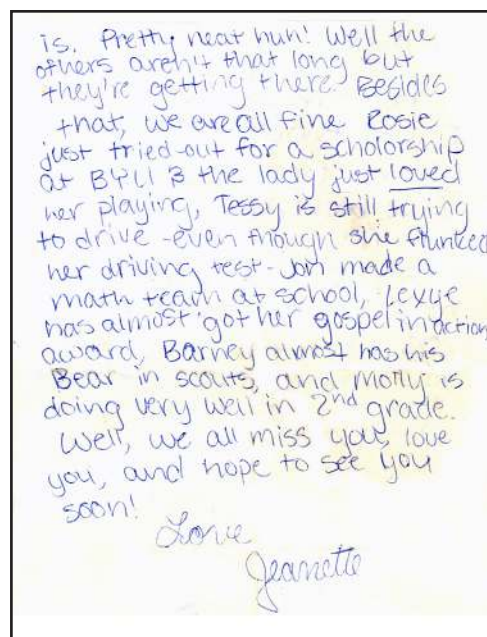 is. Pretty neat huh! Well the
others aren't that long but
they're getting there. Besides
that, we are all fine Rosie
just tried-out for a scholorship
at BYU & the lady just loved
her playing, Tessy is still trying
to drive -even though she flunked
her driving test- Jon made a
math team at school, Lexye
has almost got her gospel in action
award, Barney almost has his
Bear in scouts, and Molly is
doing very well in 2nd grade.
Well, we all miss you, love
you, and hope to see you
soon!
Love
Jeanette